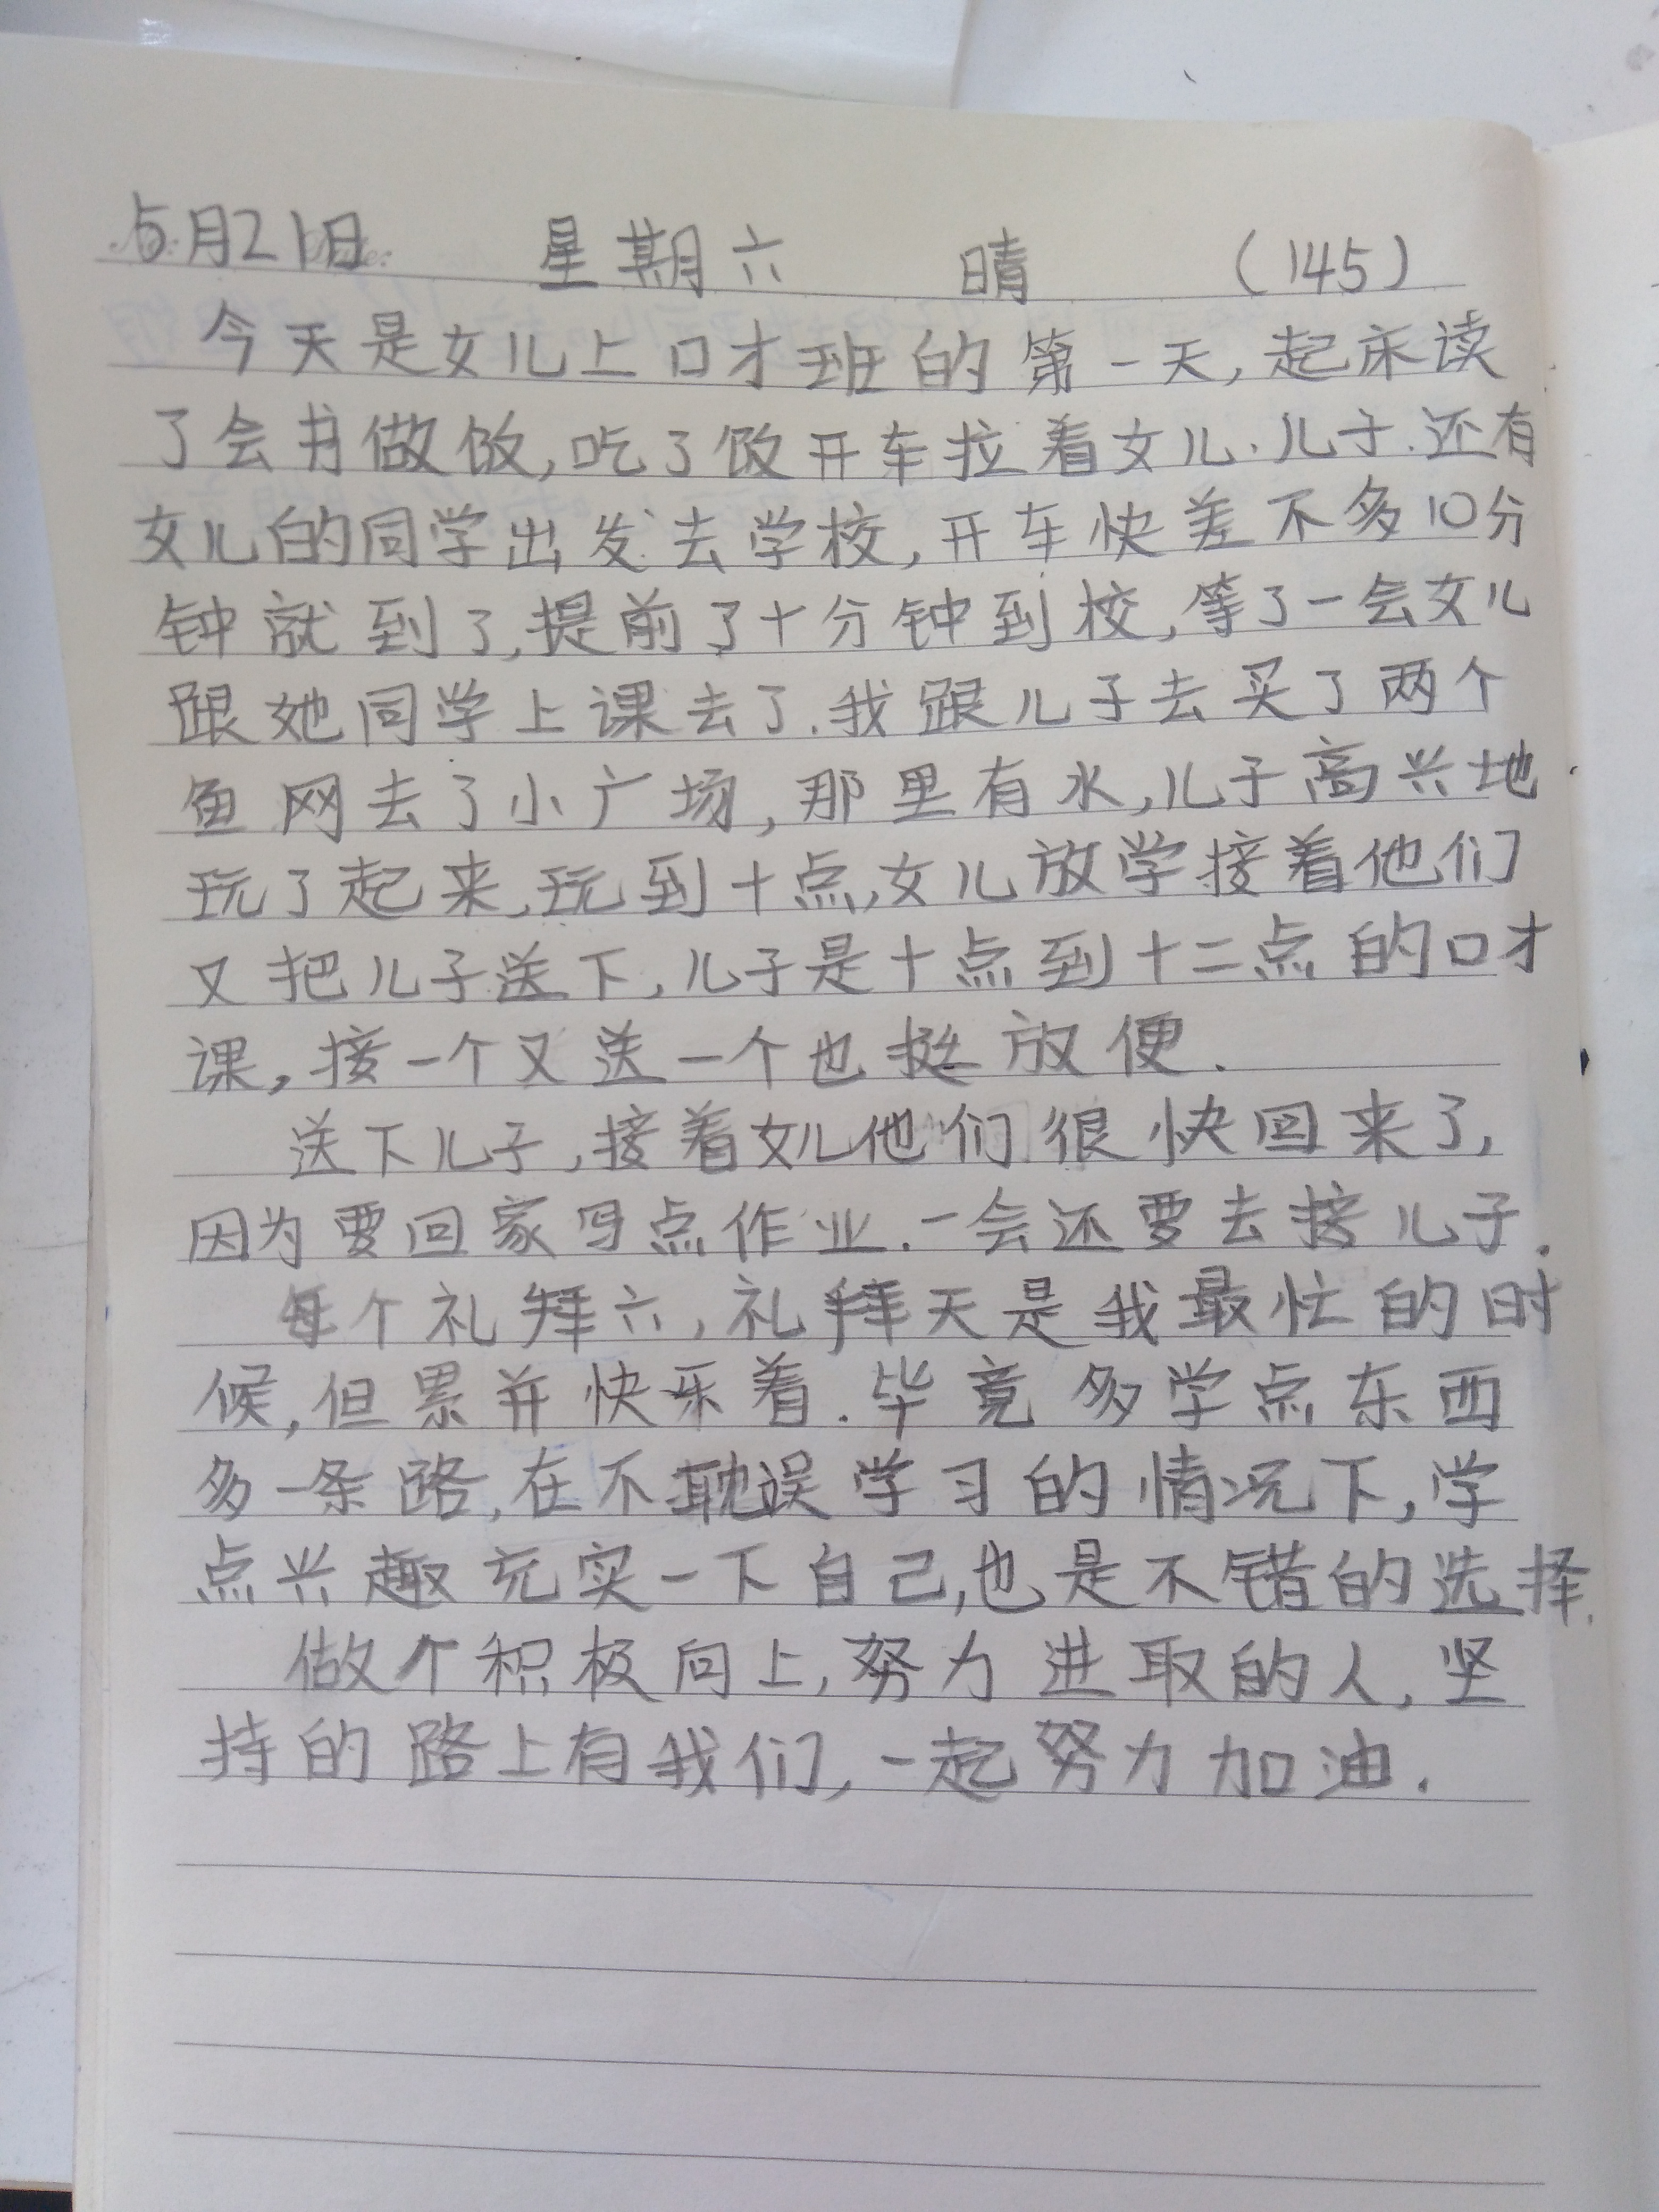 5月21日 星期六 晴 (145)
今天是女儿上口才班的第一天,起床读
了会书做饭,吃了饭开车拉着女儿.儿子.还有
女儿的同学出发去学校,开车快差不多10分
钟就到了,提前了十分钟到校,等了一会女儿
跟她同学上课去了.我跟儿子去买了两个
鱼网去了小广场,那里有水,儿子高兴地
玩了起来,玩到十点,女儿放学接着他们
又把儿子送下,儿子是十点到十二点的口才
课,接一个又送一个也挺放便.
送下儿子,接着女儿他们很快回来了,
因为要回家写点作业.一会还要去接儿子.
每个礼拜六,礼拜天是我最忙的时
候,但累并快乐着.毕竟多学点东西
多一条路,在不耽误学习的情况下,学
点兴趣充实一下自己,也是不错的选择.
做个积极向上,努力进取的人,坚
持的路上有我们,一起努力加油.